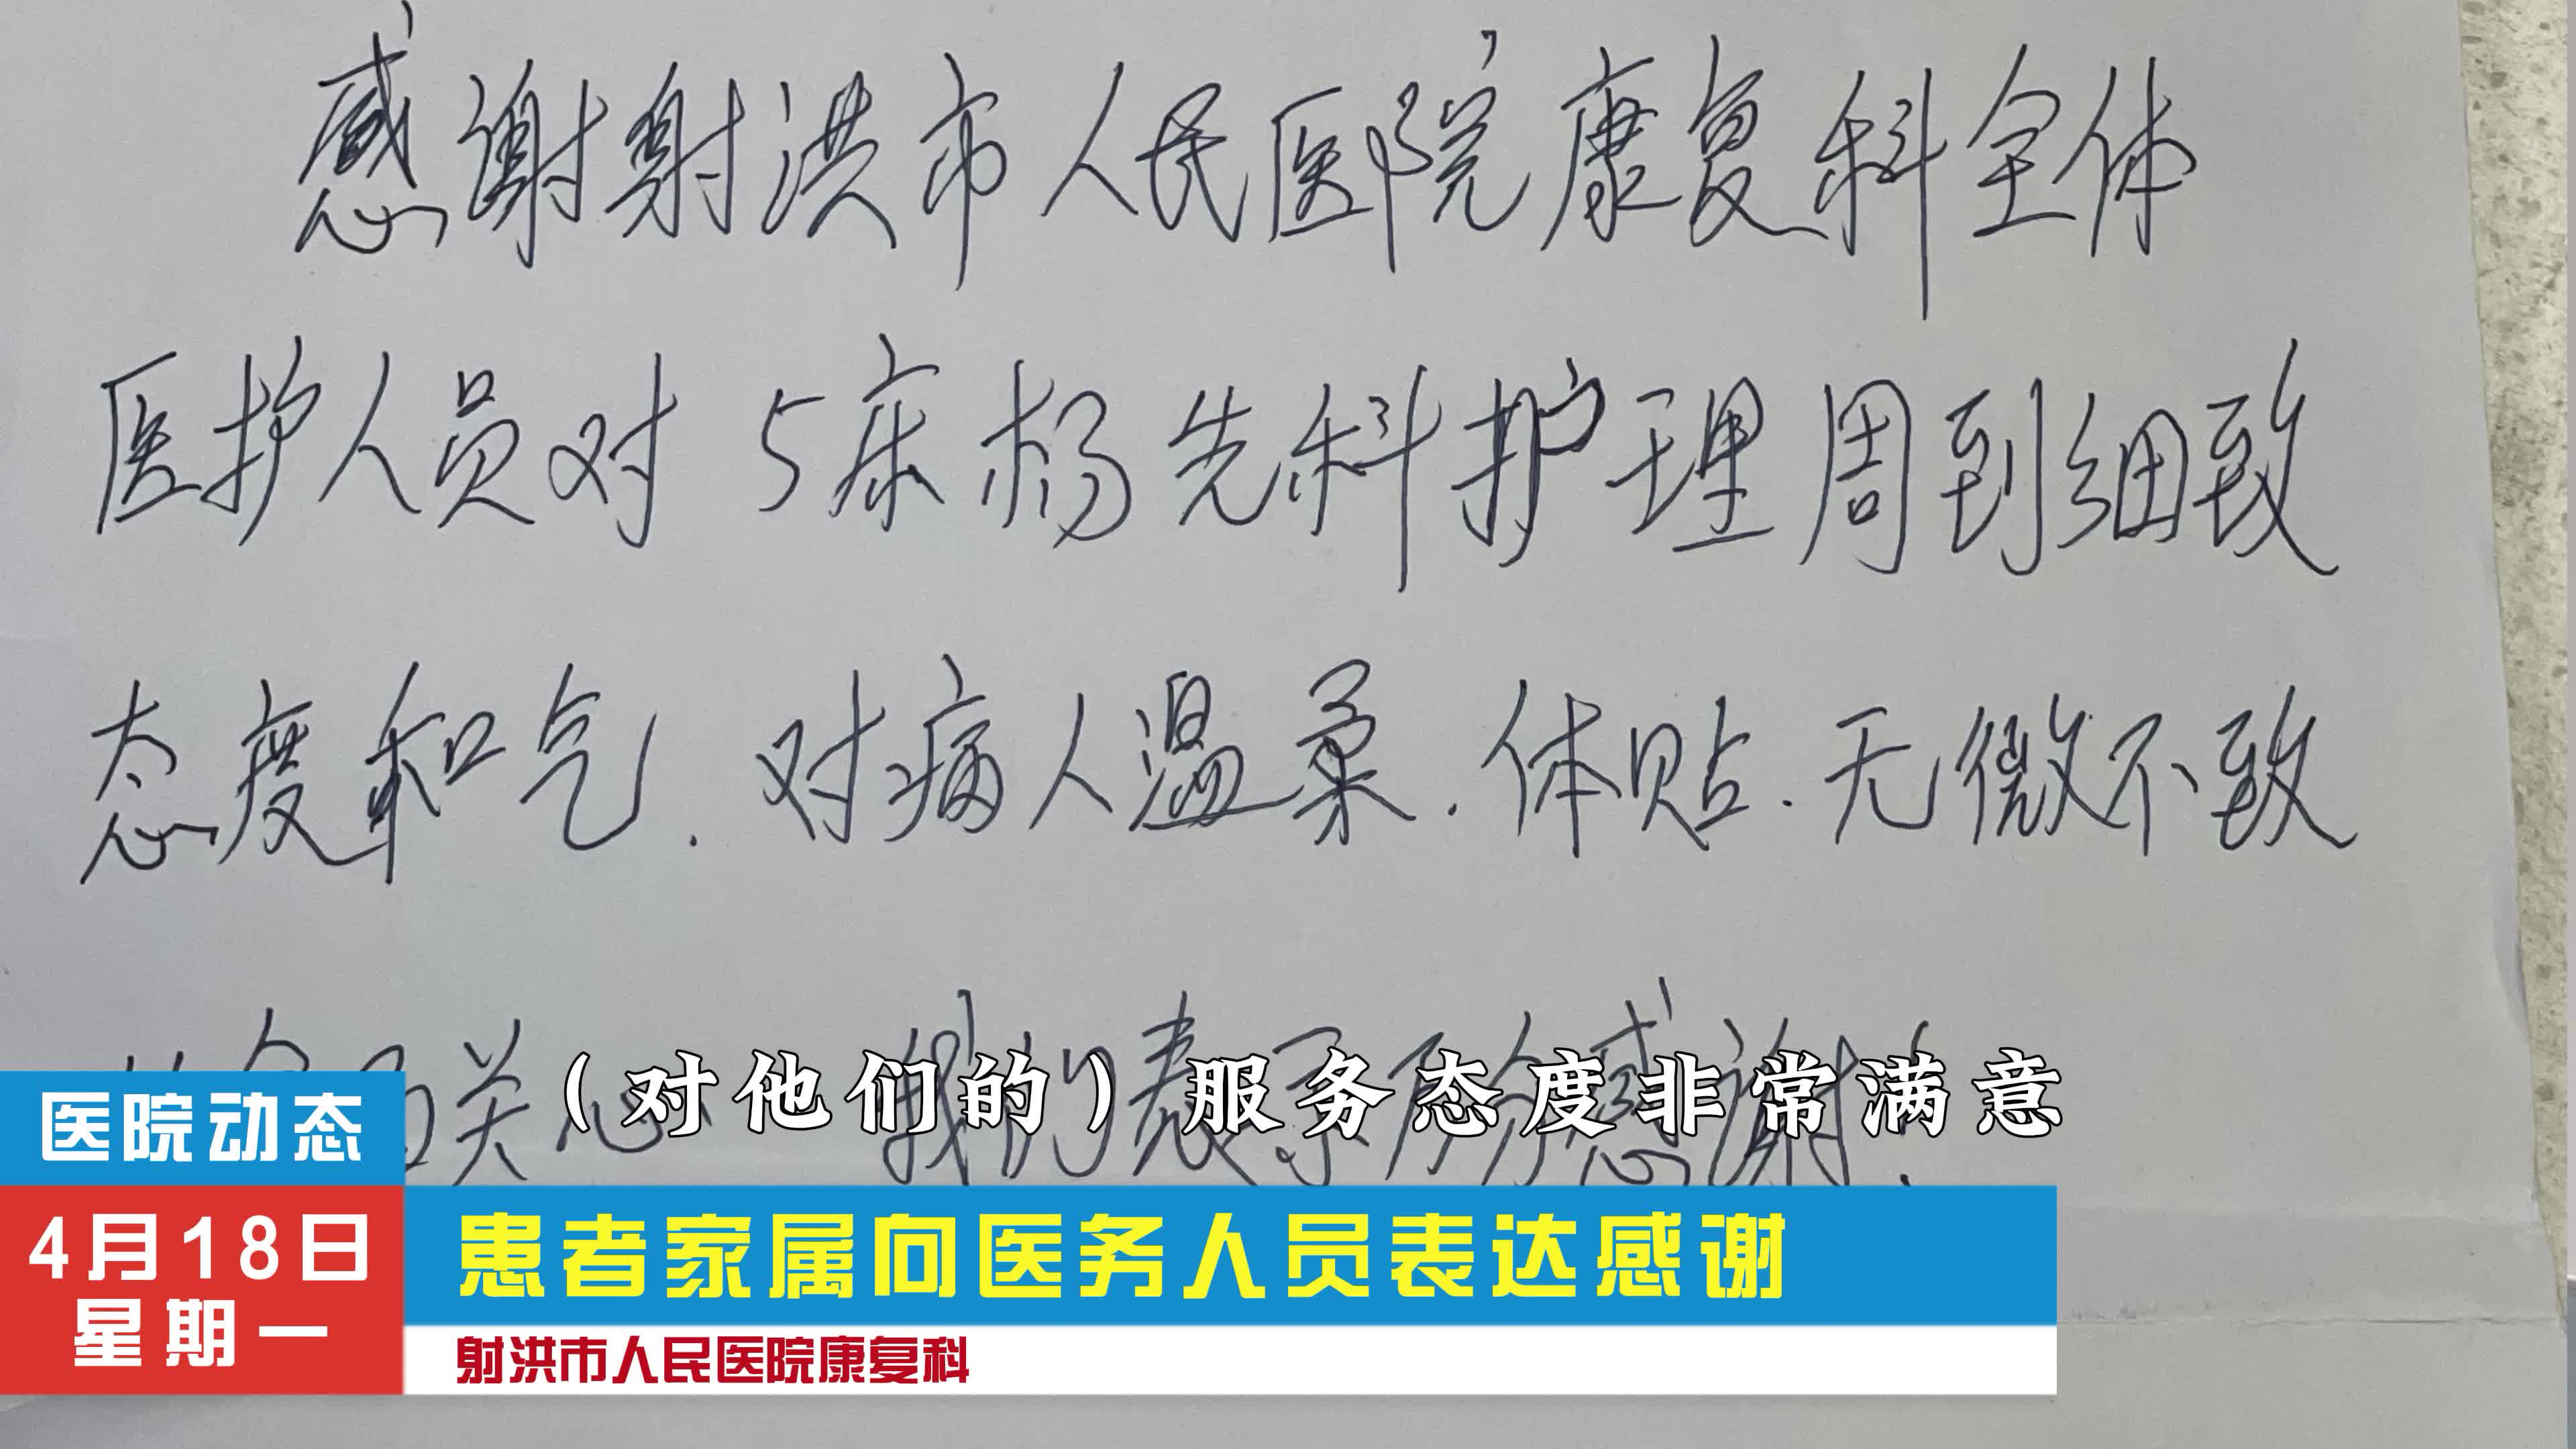 感谢射洪市人民医院康复科全体
医护人员对5床杨先科护理周到细致
态度和气.对病人温柔.体贴.无微不致
关心 我们表示万分感谢!
(对他们的)服务态度非常满意
医院动态
4月18日
星期一
患者家属向医务人员表达感谢
射洪市人民医院康复科